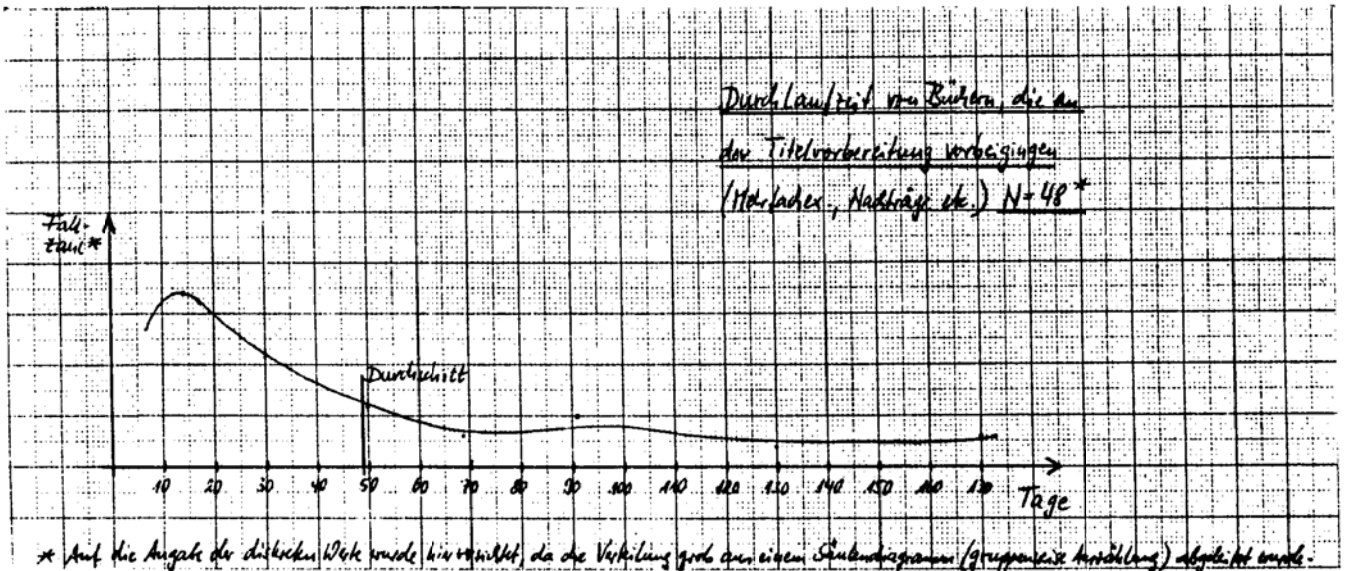 Durchlaufzeit von Büchern, die an
der Titelvorbereitung vorbeigingen
(Mehrfachex., Nachträge etc.) N=48*
Fall-
zahl*
Durchschitt
10 20 30 40 50 60 70 80 90 100 110 120 130 140 150 160 170
Tage
* Auf die Angabe der diskreten Werte wurde hier verzichtet, da die Verteilung grob aus einem Säulendiagramm (gruppenweise Auszählung) abgeleitet wurde.